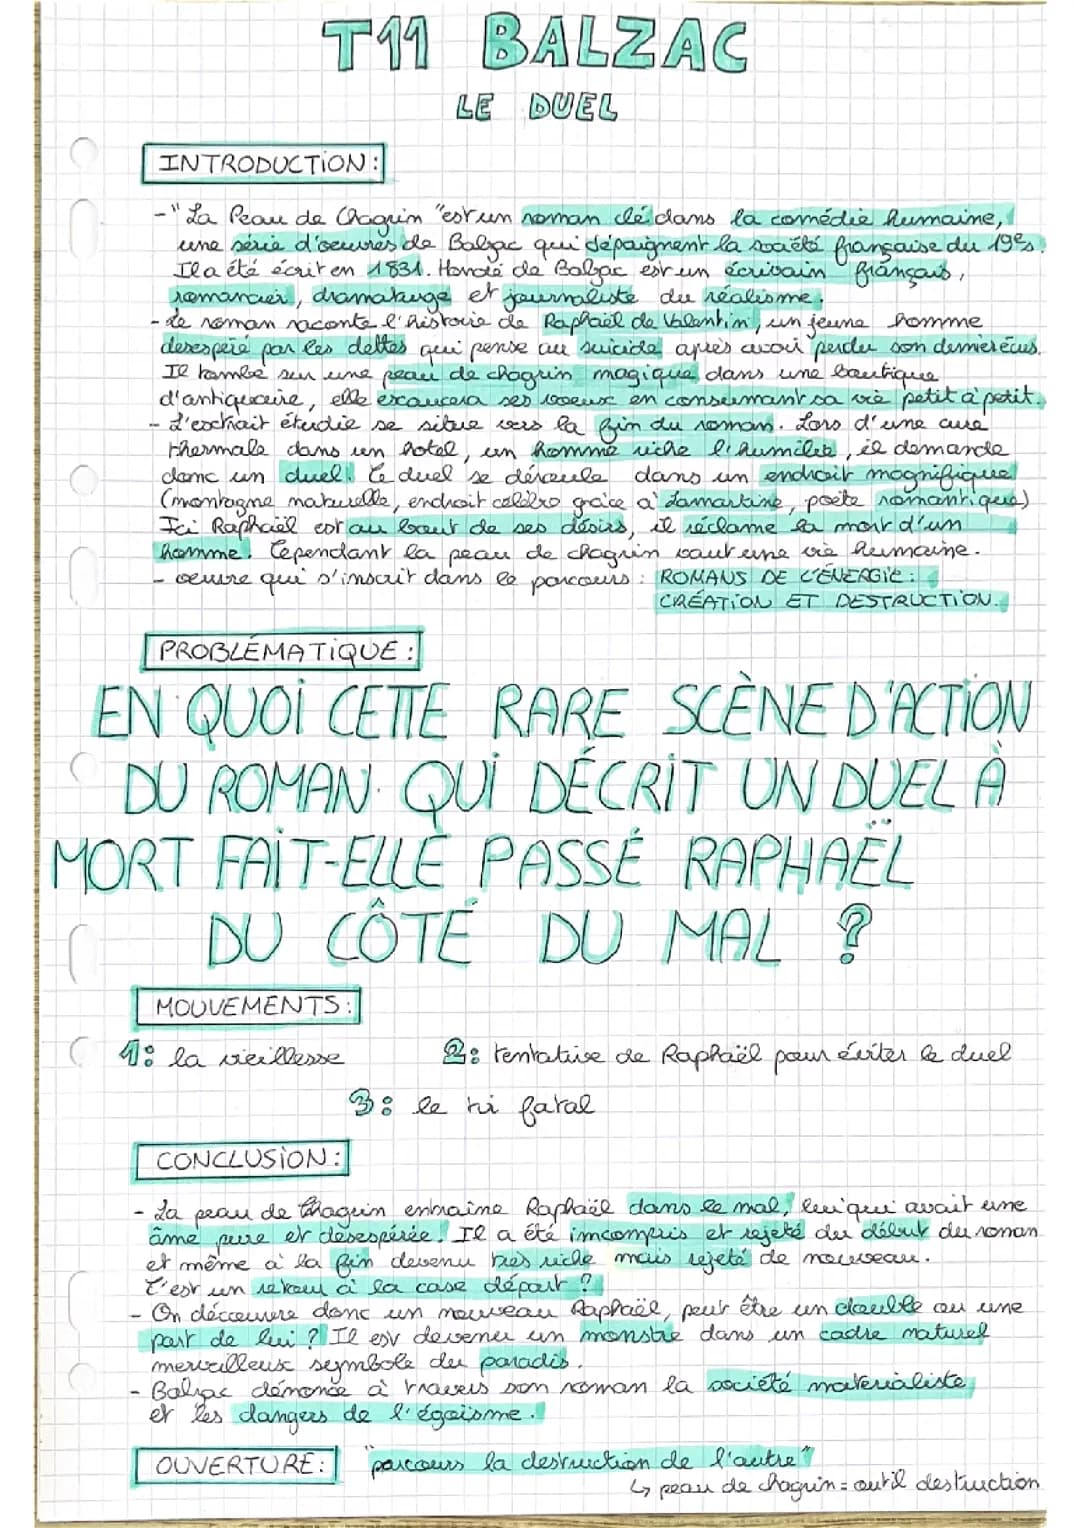 T11 BALZAC
LE DUEL
INTRODUCTION:
-"La Peau de Chagrin" est un roman clé dans la comédie humaine,
une série d'oeuvres de Balzac qui dépaignent la société française du 19e s.
Il a été écrit en 1831. Honoré de Balzac est un écrivain français,
romancier, dramaturge et journaliste du réalisme.
- Le roman raconte l'histoire de Raphaël de Valentin, un jeune homme
desespéré par les dettes qui pense au suicide après avoir perdu son dernier écus.
Il tombe sur une peau de chagrin magique dans une boutique
d'antiquaire, elle exaucera ses voeux en consumant sa vie petit à petit.
- L'extrait étudié se situe vers la fin du roman. Lors d'une cure
thermale dans un hotel, un homme riche l'humilie, il demande
donc un duel. Ce duel se déroule dans un endroit magnifique
(montagne naturelle, endroit célèbre grâce à Lamartine, poète romantique)
Ici Raphaël est au bout de ses désirs, il réclame la mort d'un
homme. Cependant la peau de chagrin vaut une vie humaine.
- oeuvre qui s'inscrit dans le parcours: ROMANS DE L'ÉNERGIE:
CRÉATION ET DESTRUCTION.
PROBLÉMATIQUE:
EN QUOI CETTE RARE SCÈNE D'ACTION
DU ROMAN QUI DÉCRIT UN DUEL À
MORT FAIT-ELLE PASSÉ RAPHAËL
DU CÔTÉ DU MAL ?
MOUVEMENTS:
1: la vieillesse 2: tentative de Raphaël pour éviter le duel
3: le tir fatal
CONCLUSION:
- La peau de Chagrin entraine Raphaël dans le mal, lui qui avait une
âme pure et désespérée. Il a été imcompris et rejeté du début du roman
et même à la fin devenu très riche mais rejeté de nouveau.
C'est un retour à la case départ ?
- On découvre donc un nouveau Raphaël, peut être un double ou une
part de lui ? Il est devenu un monstre dans un cadre naturel
merveilleux symbole du paradis.
- Balzac dénonce à travers son roman la société matérialiste
et les dangers de l'égoïsme.
OUVERTURE: "parcours la destruction de l'autre"
↳ peau de chagrin = outil destruction